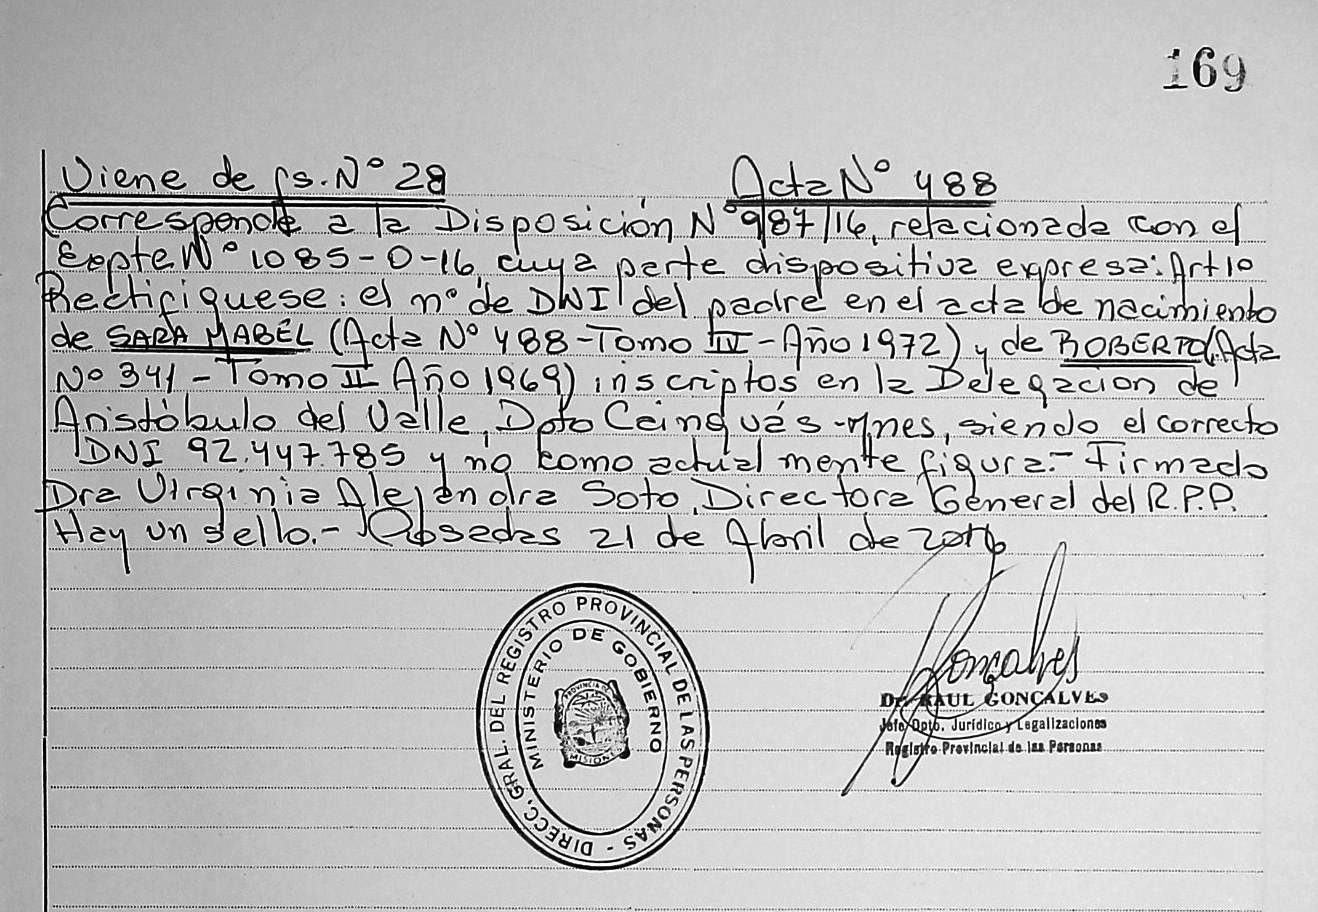 169
Viene de fs. Nº 28 Acta Nº 488
Corresponde a la Disposición Nº 987/16, relacionada con el
Expte Nº 1085-O-16, cuya parte dispositiva expresa: Art 1º
Rectifiquese: el nº de DNI del padre en el acta de nacimiento
de SARA MABEL (Acta Nº 488-Tomo III-Año 1972) y de ROBERTO (Acta
Nº 341-Tomo II Año 1969) inscriptos en la Delegacion de
Aristóbulo del Valle, Dpto Cainguás-Mnes, siendo el correcto
DNI 92.447.785 y no como actualmente figura.- Firmado
Dra Virginia Alejandra Soto, Directora General del R.P.P.
Hay un sello.- Posadas 21 de Abril de 2016
DIRECC. GRAL. DEL REGISTRO PROVINCIAL DE LAS PERSONAS -
MINISTERIO DE GOBIERNO
PROVINCIA DE
MISIONES
Gonçalves
Dr. RAUL GONÇALVES
Jefe Dpto. Jurídico y Legalizaciones
Registro Provincial de las Personas